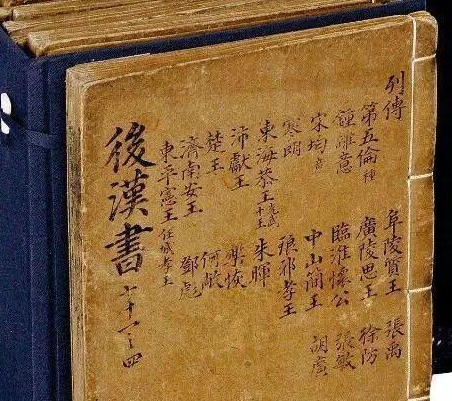 列傳 阜陵質王 張禹
第五倫種 廣陵思王 徐防
鍾離意 臨淮懷公 張敏
宋均意 中山簡王 胡廣
寒朗 琅邪孝王
東海恭王光武十王 朱暉
沛獻王 樂恢
楚王 何敞
濟南安王 鄧彪
東平憲王任城孝王
後漢書